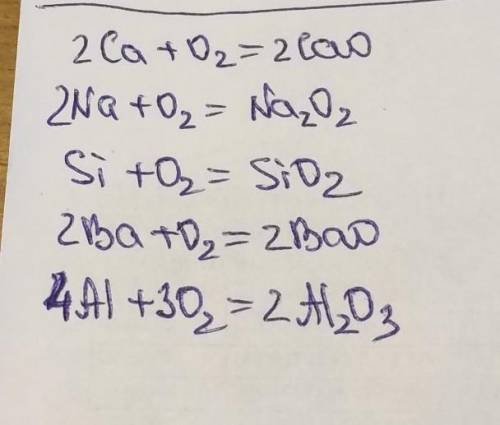 2Ca + O₂ = 2CaO
2Na + O₂ = Na₂O₂
Si + O₂ = SiO₂
2Ba + O₂ = 2BaO
4Al + 3O₂ = 2Al₂O₃